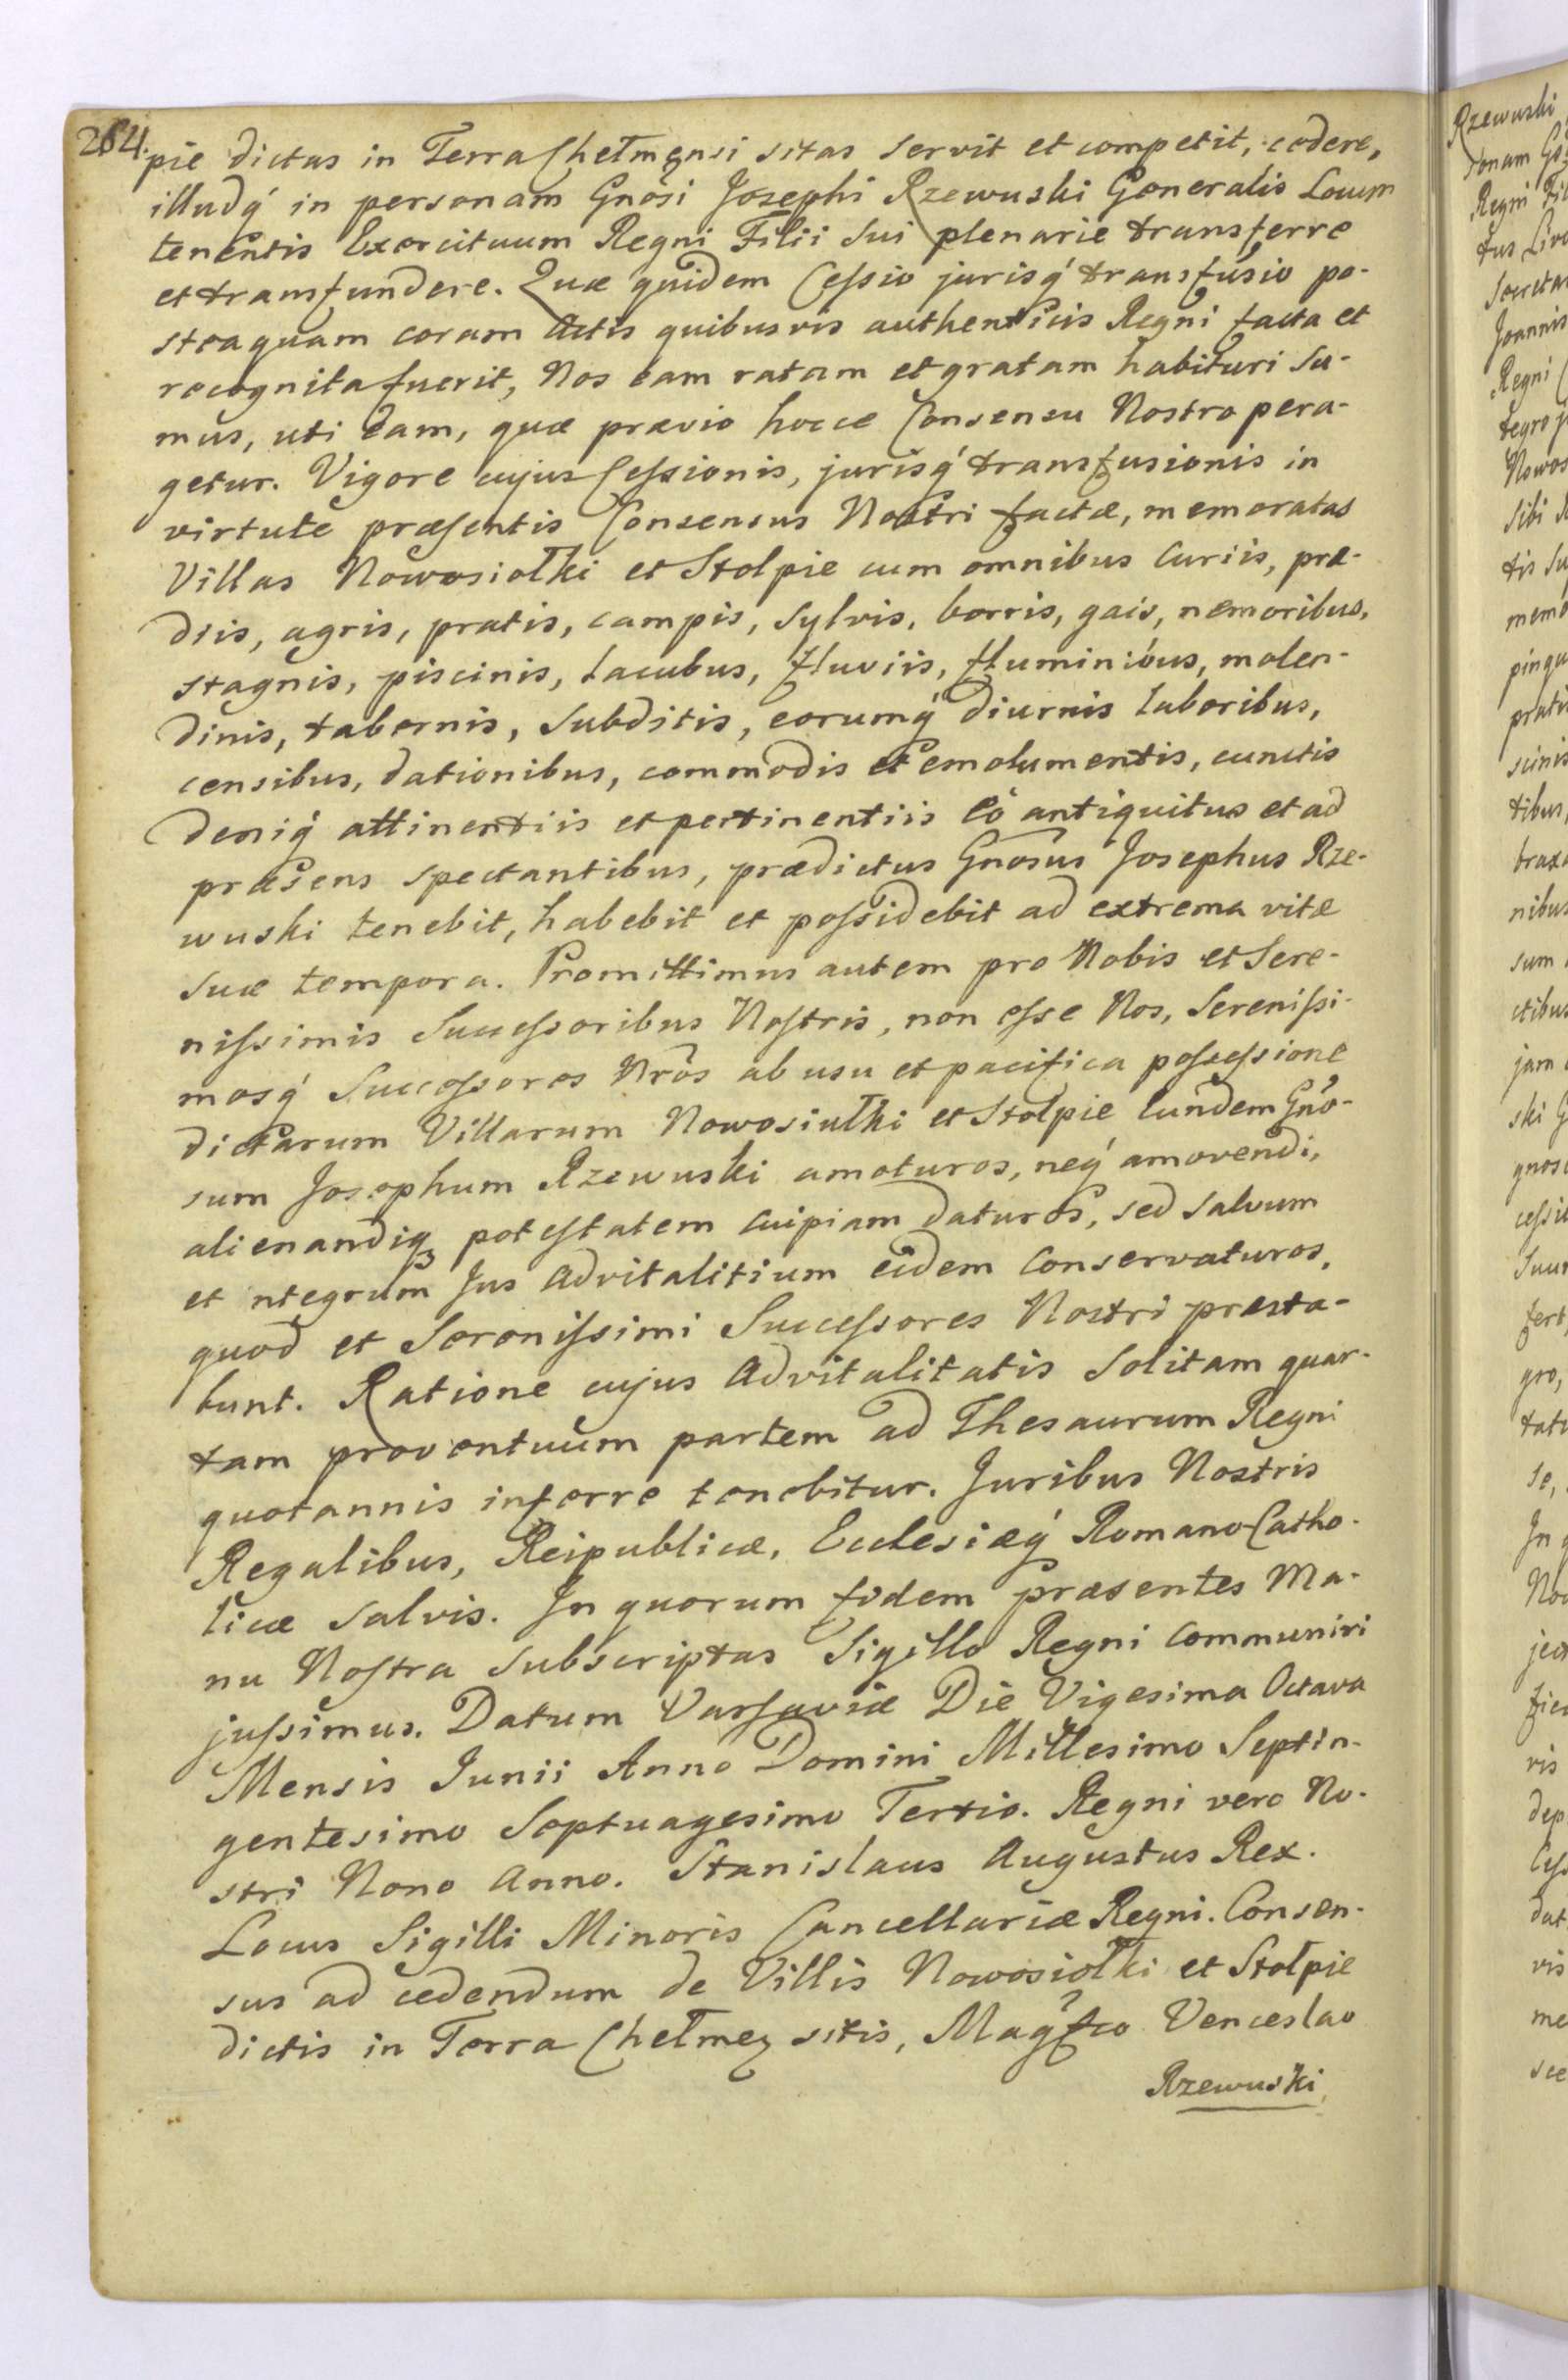 264.
pie dictas in Terra Chełmensi sitas servit et competit, cedere,
illudq́ in personam Gnosi Josephi Rzewuski Generalis Locum
tenentis Exercituum Regni Filii Sui plenarie transferre
et transfundere. Quæ quidem Cessio jurisq́ transfusio po-
steaquam coram Actis quibusvis authenticis Regni facta et
recognita fuerit, Nos eam ratam et gratam habituri Su-
mus, uti eam, quæ prævio hocce Consensu Nostro pera-
getur. Vigore cujus Cessionis, jurisq́ transfusionis in
virtute præsentis Consensus Nostri factæ, memoratas
Villas Nowosiołki et Stołpie cum omnibus Curiis, præ-
diis, agris, pratis, campis, Sylvis, borris, gais, nemoribus,
stagnis, piscinis, lacubus, fluviis, fluminibus, molen-
dinis, tabernis, Subditis, eorumq́ diurnis laboribus,
censibus, dationibus, commodis et emolumentis, cunctis
deniq́ attinentiis et pertinentiis eò antiquitus et ad
præsens spectantibus, prædictus Gnosus Josephus Rze-
wuski tenebit, habebit et possidebit ad extrema vitæ
suæ tempora. Promittimus autem pro Nobis et Sere-
nissimis Successoribus Nostris, non esse Nos, Serenissi-
mosq́ Successores Nrôs ab usu et pacifica possessione
dictarum Villarum Nowosiułki et Stołpie Eundem Gno-
sum Josephum Rzewuski amoturos, neq́ amovendi,
alienandiq3 potestatem cuipiam daturos, sed Salvum
et ntegrum Jus Advitalitium eidem Conservaturos,
quod et Serenissimi Successores Nostri præsta-
bunt. Ratione cujus Advitalitatis Solitam quar-
tam proventuum partem ad Thesaurum Regni
quotannis inferre tenebitur. Juribus Nostris
Regalibus, Reipublicæ, Ecclesiæq́ Romano Catho-
licæ Salvis. In quorum fidem præsentes Ma-
nu Nostra Subscriptas Sigillo Regni Communiri
jussimus. Datum Varsaviæ Die Vigesima Octava
Mensis Junii Anno Domini Millesimo Septin-
gentesimo Septuagesimo Tertio. Regni vero No-
stri Nono Anno. Stanislaus Augustus Rex.
Locus Sigilli Minoris Cancellariæ Regni. Consen-
sus ad cedendum de Villis Nowosiołki et Stołpie
dictis in Terra Chełmen sitis, Magfco Venceslao
Rzewuski
Rzewuski
Regni
Joannis
Regni
sibi
pingu
nibus
sum
jam
ski
gro,
se,
In
vis
vis
me